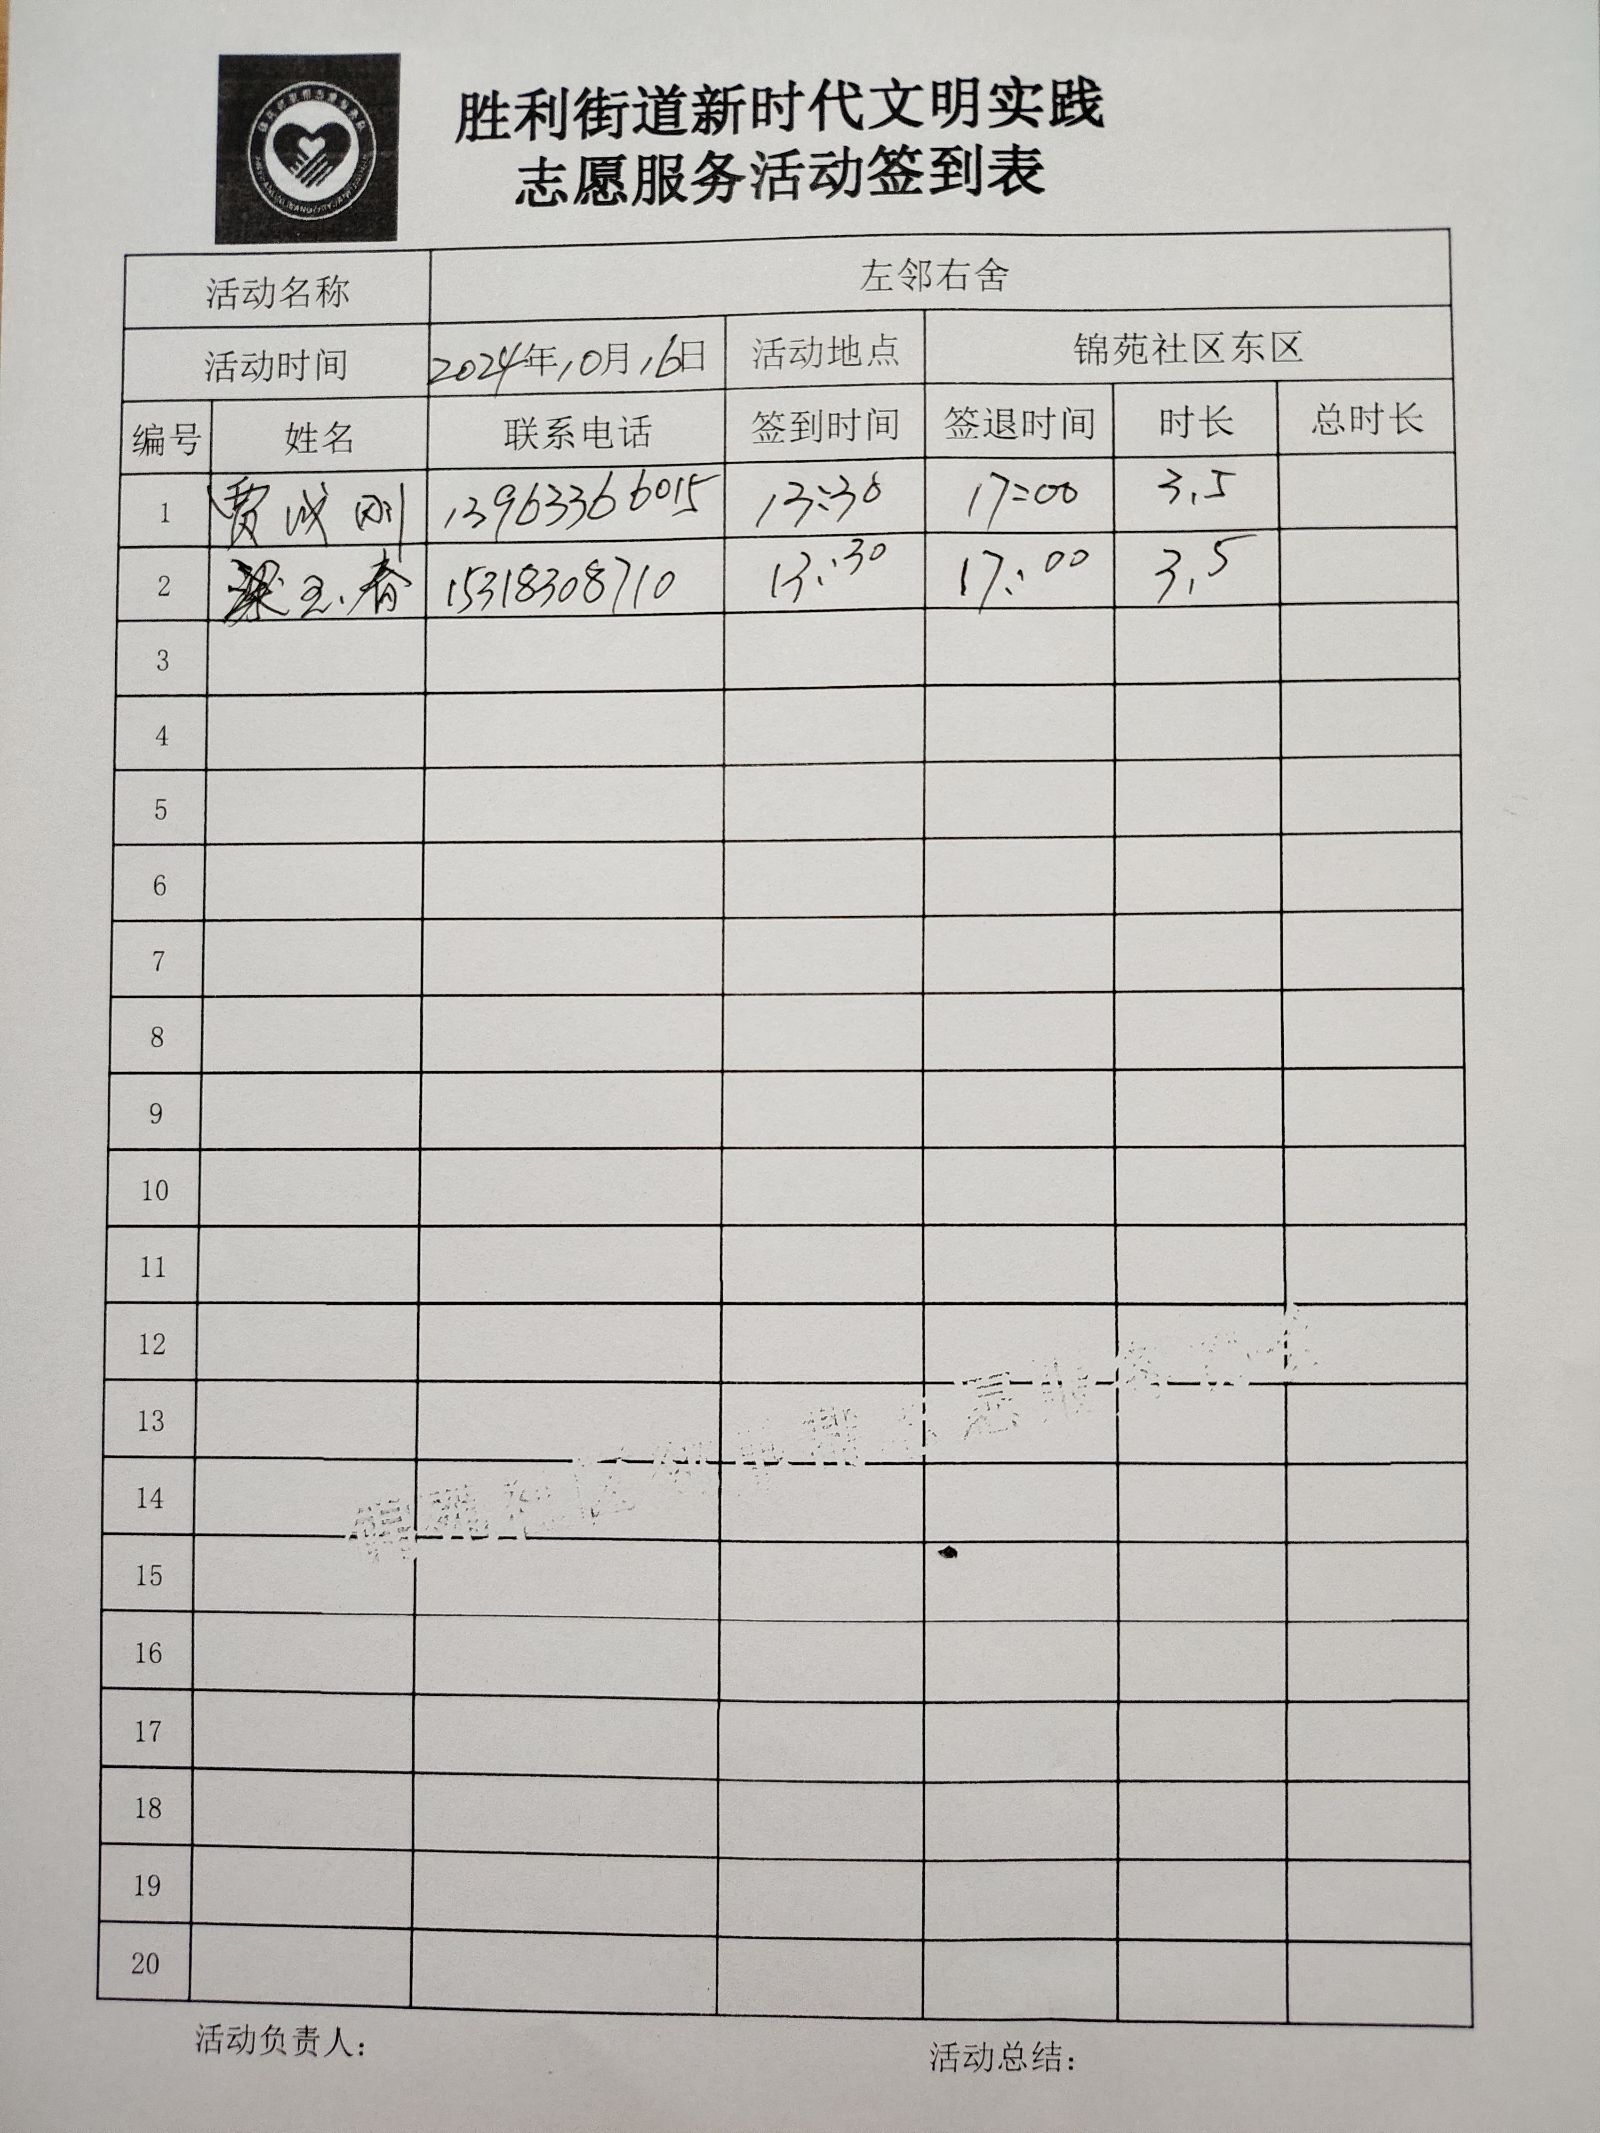 胜利街道新时代文明实践
志愿服务活动签到表
活动名称 左邻右舍
活动时间 2024年10月16日 活动地点 锦苑社区东区
编号 姓名 联系电话 签到时间 签退时间 时长 总时长
1 贾成刚 13963366015 13:30 17:00 3.5
2 梁玉春 15318308710 13:30 17:00 3.5
3
4
5
6
7
8
9
10
11
12
13
14
15
16
17
18
19
20
活动负责人: 活动总结: